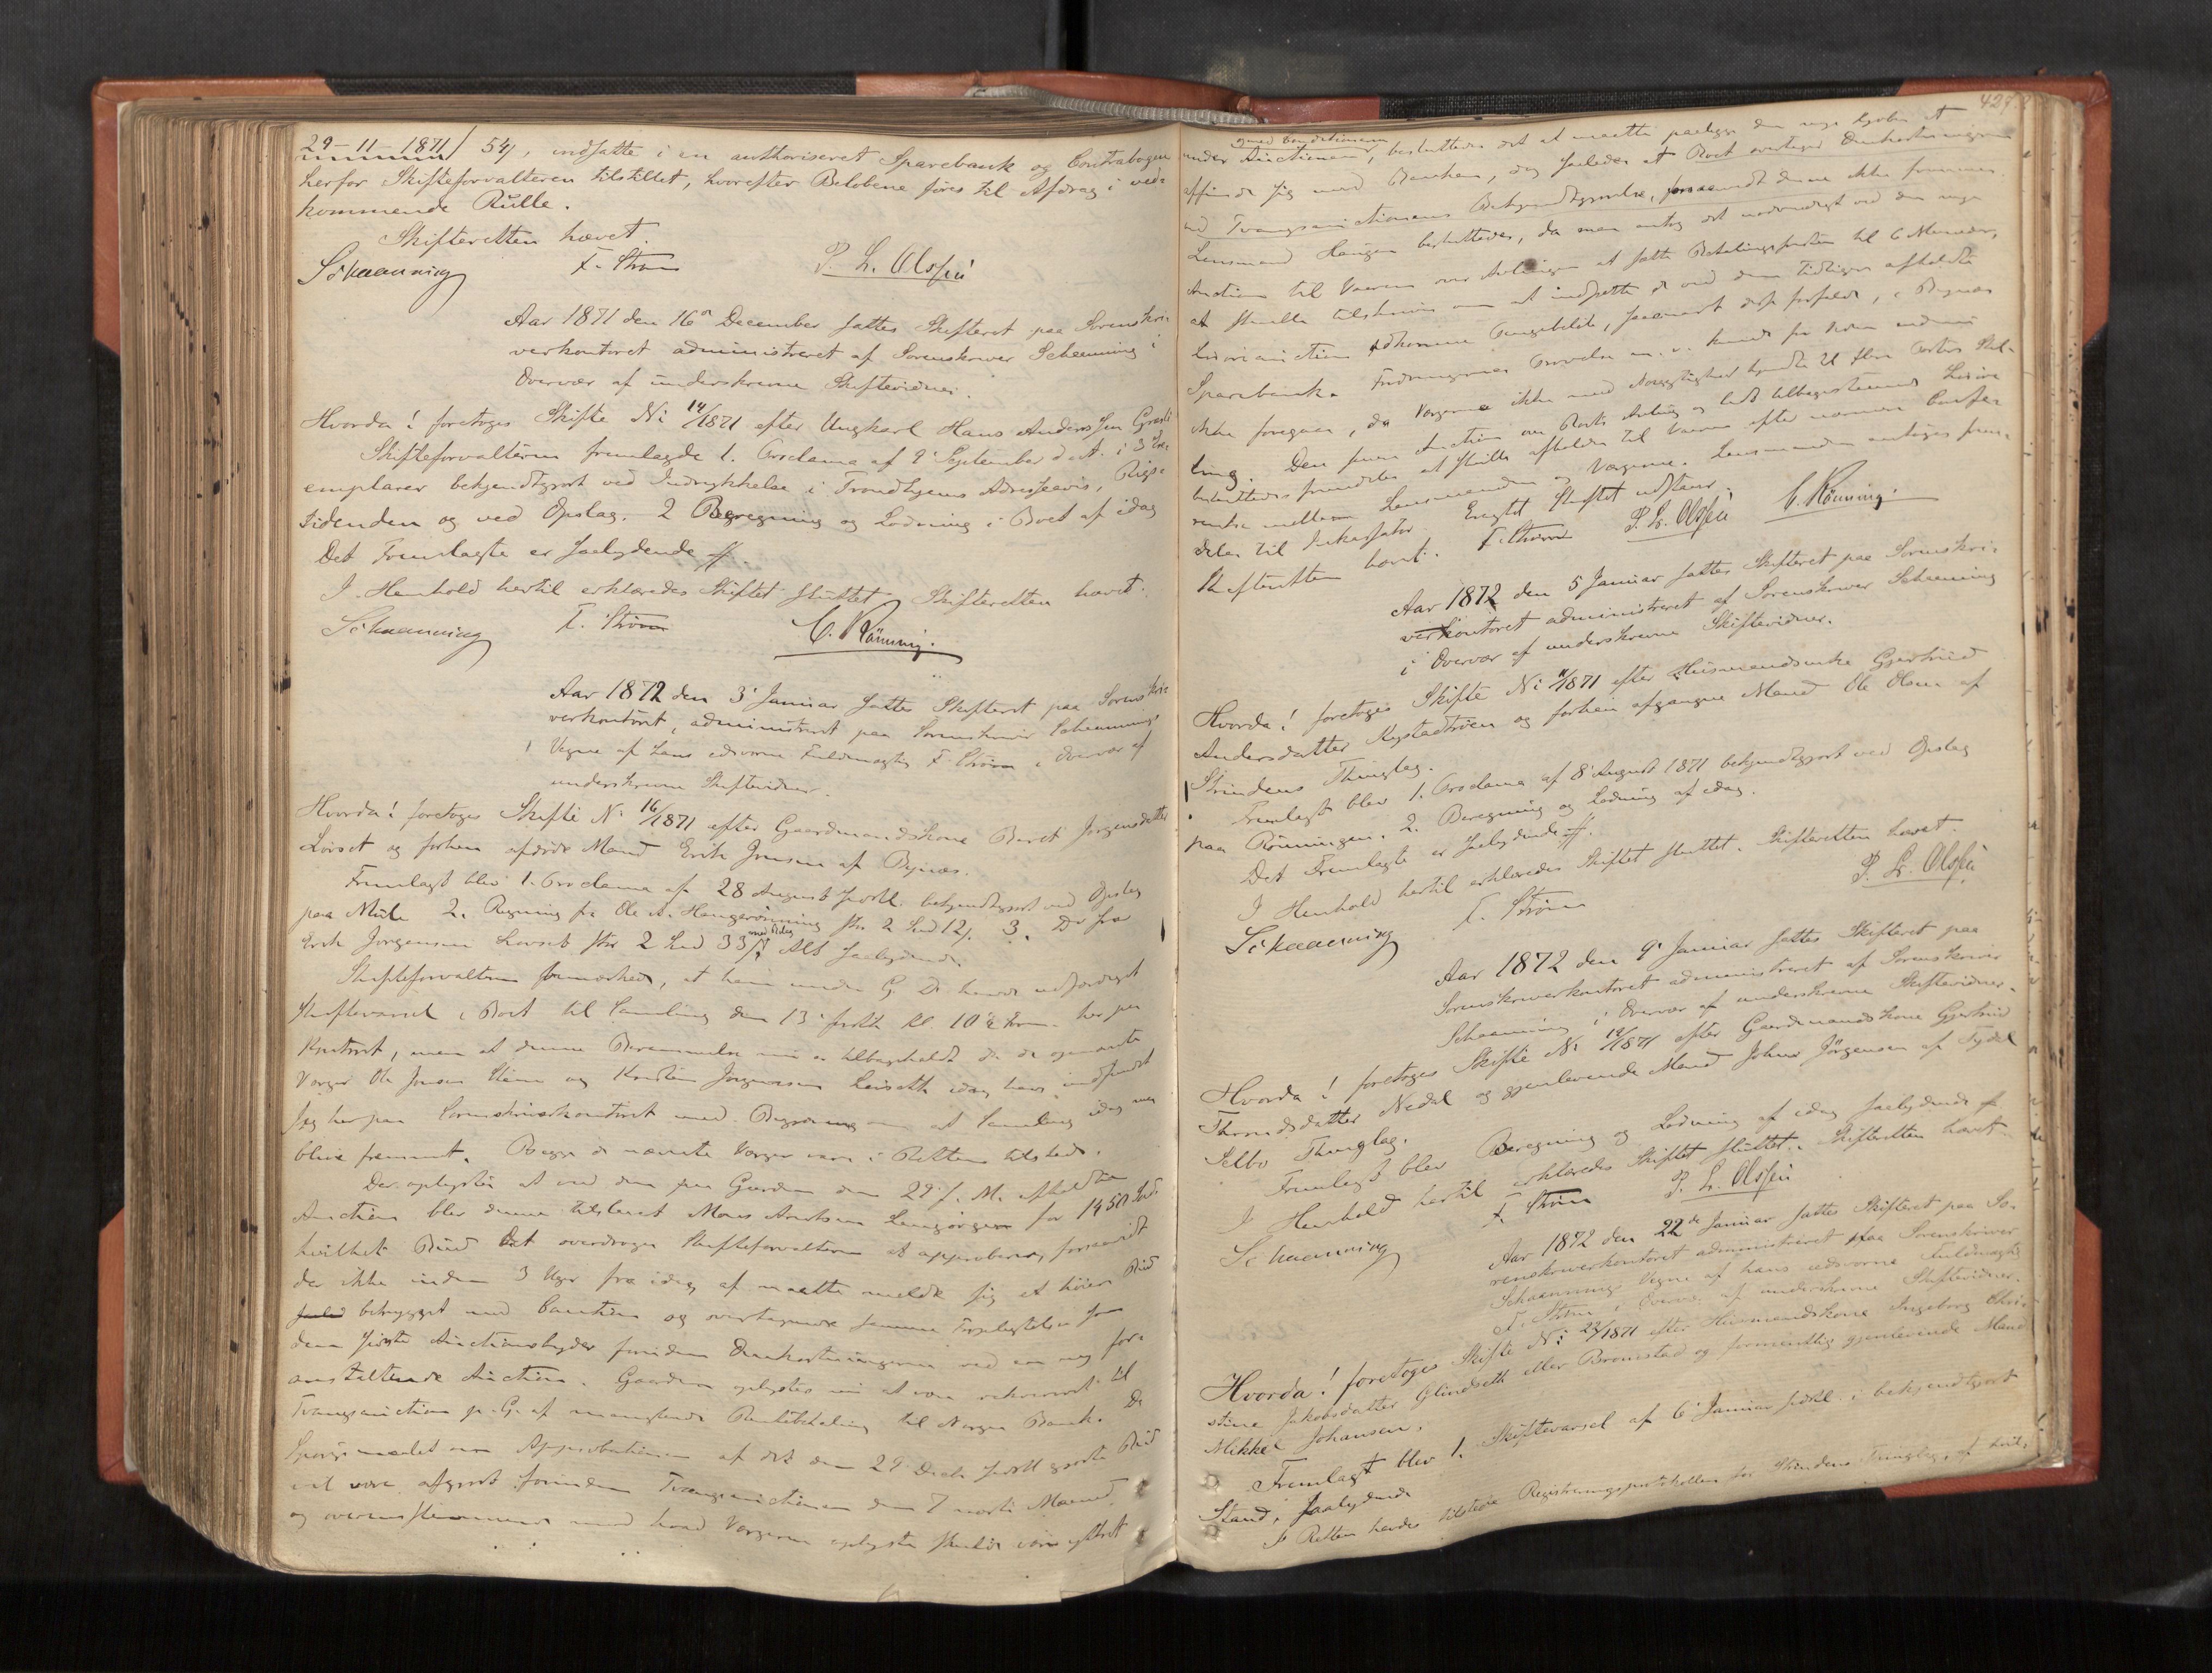 29-11-1871/ 54, indsatte i en authoriseret Sparebank og Contrabogen
herfor Skifteforvalteren tilstillet, hvorefter Beløbene føres til Afdrag i ved-
kommende Rulle.
Skifteretten hævet.
Schaanning F. Strøm P. L. Olssen
Aar 1871 den 16 December sattes Skifteret paa Sorenskri-
verkontoret administreret af Sorenskriver Schaanning i
Overvær af underskrevne Skiftevidner.
Hvorda! foretoges Skifte No 14/1871 efter Ungkarl Hans Anderssen
Skifteforvalteren fremlagde 1. Proclama af 9 September d. A. i 3 Ex-
emplarer bekjendtgjort ved Indrykkelse i Trondhjems Adresseavis, Rigs-
tidenden og ved Opslag. 2 Beregning og Lodning i Boet af idag
Det Fremlagte er saalydende
I Henhold hertil erklæredes Skiftet sluttet. Skifteretten hævet.
Schaanning F. Strøm C. Rönning.
Aar 1872 den 3 Januar sattes Skifteret paa Sorenskri-
verkontoret, administreret paa Sorenskriver Schaannings
Vegne af hans edsvorne Fuldmægtig F. Strøm i Overvær af
underskrevne Skiftevidner.
Hvorda! foretoges Skifte No 16/1871 efter Gaardmandskone Beret Jørgensdatter
og forhen afdøde Mand Erik Jensen af Bynæs.
Fremlagt blev 1. Proclama af 28 August bekjendtgjort ved Opslag
paa 2. Regning fra Ole A. Haugerønning 3. Do fra
Erik Jørgensen 2 33 Alt saalydende
Skifteforvalteren bemærkede, at han under G. D. havde udfærdiget
Skiftevarsel i Boet til Samling den 13 her paa
Kontoret, men at denne Berammelse nu er tilbageholdt da de opnævnte
Verger Ole Jonsen og Jørgensen idag have indfundet
sig her paa Sorenskriverkontoret med Begjæring om at Samling idag maa
blive fremmet. Begge de nævnte Verger vare i Retten tilstede.
Der oplystes at ved den paa Gaarden den 29 f. M. afholdte
Auction blev denne tilslaaet for 1450
hvilket Bud det overdroges Skifteforvalteren at approbere, forsaavidt
der ikke inden 3 Uger fra idag af maatte melde sig et høiere Bud
betrygget med Caution og overtagende samme Forpligtelse som
den sidste Auctionsbyder foruden Omkostningerne ved en ny fore-
anstaltende Auction. Gaarden oplystes nu at være rekvireret til
Tvangsauction p. G. af manglende Rentebetaling til Norges Bank. Da
Spørgsmaalet om Approbationen af det den 29 gjorte Bud
vil være afgjort forinden Tvangsauctionen den 7 næste Maaned
og overensstemmende med hvad Vergerne oplyste skulde være yttret
427
med Conditionerne
under Auctionen, besluttedes det at maatte paalægge den nye Kjøber at
affinde sig med Banken, dog saaledes at Boet overtager Omkostningerne
ved Tvangsauctionens Bekjendtgjørelse, forsaavidt denne ikke fremmes.
Lensmand Haugen besluttedes, da man antog det nødvendigt ved den nye
Auction til Vaaren over Avlingen at sætte Betalingsfristen til 6 Maaneder,
at skulle tilskrives om at indsætte de ved den tidligere afholdte
Løsøreauction indkomne Pengebeløb, saasnart disse forfalde, i Bynæs
Sparebank.
ikke foregaa, da Vergerne ikke med Nøiagtighed kjendte til flere Posters Stil-
ling. Den Auction over Boets Avling og lidt tilbagestaaende Løsøre
besluttedes fremdeles at skulle afholdes til Vaaren efter nærmere Confe-
rence mellem Lensmanden og Vergerne. Lensmanden antoges frem-
deles til Inkassator. Forøvrigt Skiftet udstaar.
Skifteretten hævet. F. Strøm P. L. Olssen C. Rönning.
Aar 1872 den 5 Januar sattes Skifteret paa Sorenskri-
verkontoret administreret af Sorenskriver Schaanning
i Overvær af underskrevne Skiftevidner.
Hvorda! foretoges Skifte No /1871 efter Husmandsenke Gjertrud
Andersdatter Rystadtrøen og forhen afgangne Mand Ole Olsen af
Strindens Thinglag.
Fremlagt blev 1. Proclama af 8 August 1871 bekjendtgjort ved Opslag
paa Rönningen. 2. Beregning og Lodning af idag.
Det Fremlagte er saalydende
I Henhold hertil erklæredes Skiftet sluttet. Skifteretten hævet.
Schaanning F. Strøm P. L. Olssen
Aar 1872 den 9 Januar sattes Skifteret paa
Sorenskriverkontoret administreret af Sorenskriver
Schaanning i Overvær af underskrevne Skiftevidner.
Hvorda! foretoges Skifte No 19/1871 efter Gaardmandskone Gjertrud
Thomasdatter Nedal og gjenlevende Mand Johns Jörgensen af Tydal
Selbo Thinglag.
Fremlagt blev Beregning og Lodning af idag saalydende
I Henhold hertil erklæredes Skiftet sluttet. Skifteretten hævet.
Schaanning F. Strøm P. L. Olssen
Aar 1872 den 22de Januar sattes Skifteret paa So-
renskriverkontoret administreret paa Sorenskriver
Schaannings Vegne af hans edsvorne Fuldmægtig
F. Strøm i Overvær af underskrevne Skiftevidner.
Hvorda! foretoges Skifte No 22/1871 efter Husmandskone Ingeborg Chri-
stine Jakobsdatter Glindseth eller Bromstad og formentlig gjenlevende Mand
Mikkel Johansen.
Fremlagt blev 1. Skiftevarsel af 6 Januar i bekjendtgjort
Stand, saalydende
I Retten havdes tilstede Registreringsprotokollen for Strindens Thinglag, af hvil-